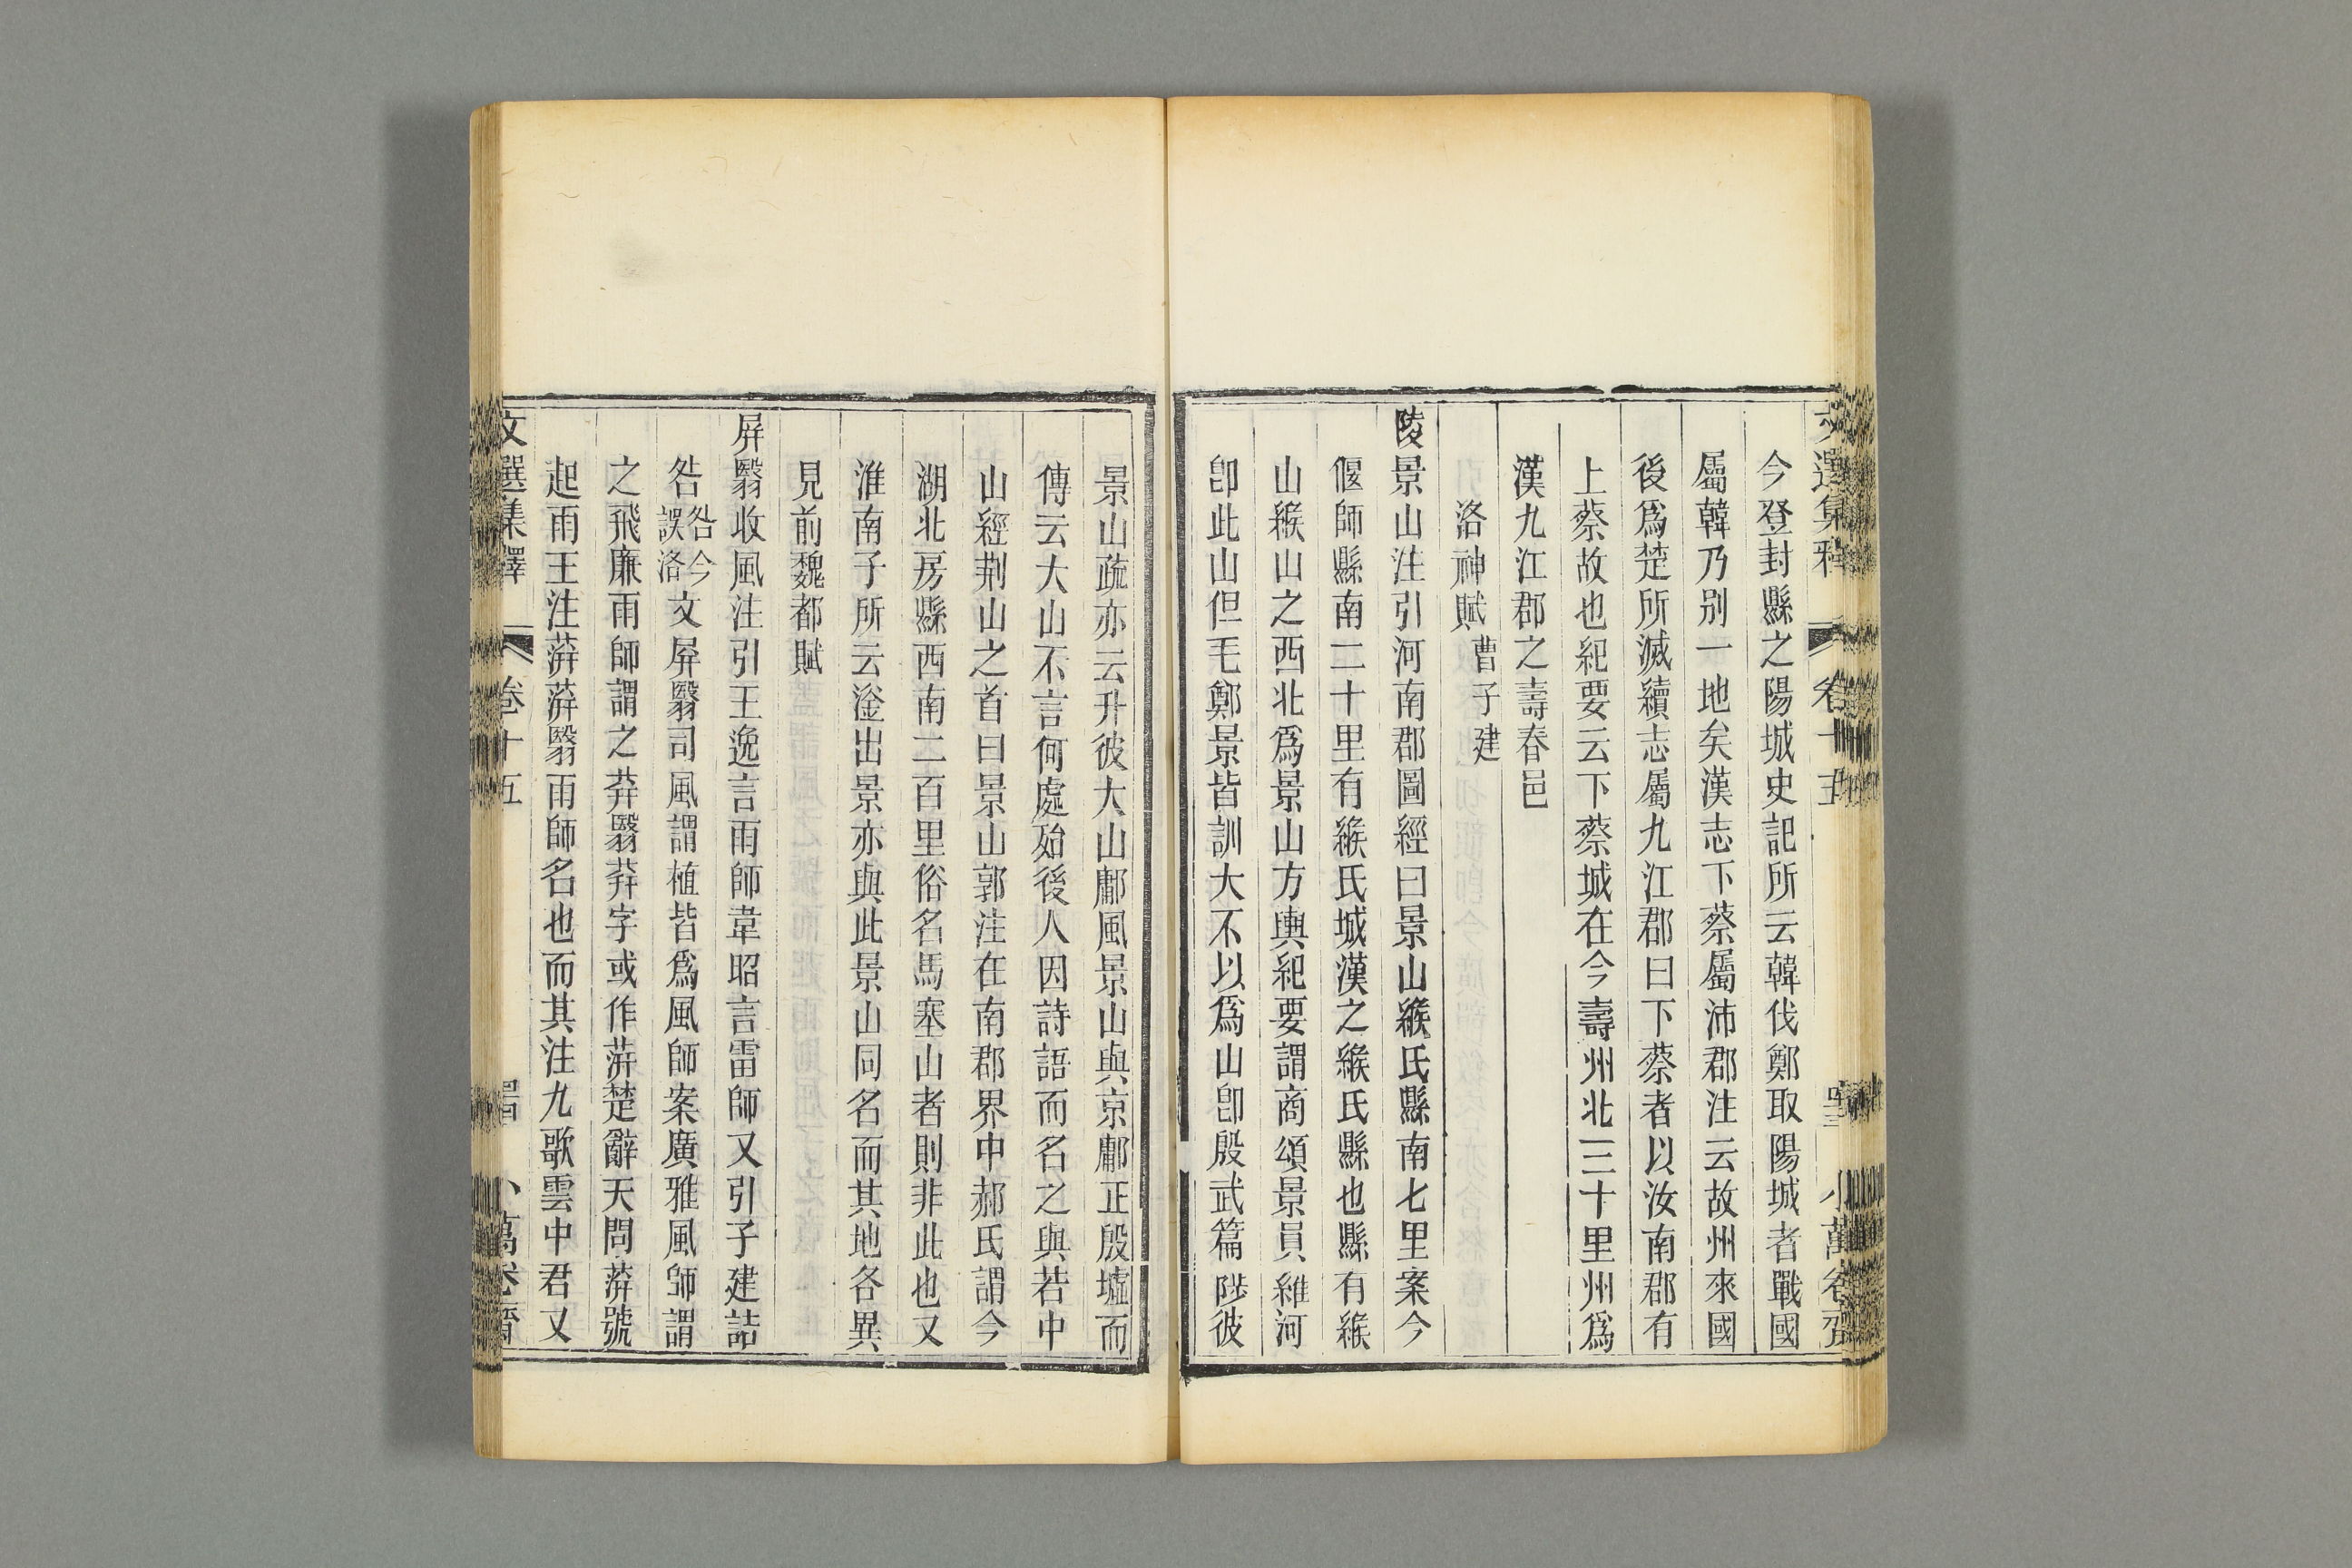 今登封縣之陽城史記所云韓伐鄭取陽城者戰國
屬韓乃別一地矣漢志下蔡屬沛郡注云故州來國
後爲楚所滅續志屬九江郡曰下蔡者以汝南郡有
上蔡故也紀要云下蔡城在今壽州北三十里州爲
漢九江郡之壽春邑
洛神賦 曹子建
陵景山注引河南郡圖經曰景山緱氏縣南七里案今
偃師縣南二十里有緱氏城漢之緱氏縣也縣有緱
山緱山之西北爲景山方輿紀要謂商頌景員維河
卽此山但毛鄭景皆訓大不以爲山卽殷武篇陟彼
景山疏亦云升彼大山鄘風景山與京鄘正殷墟而
傳云大山不言何處殆後人因詩語而名之與若中
山經荆山之首曰景山郭注在南郡界中郝氏謂今
湖北房縣西南二百里俗名馬塞山者則非此也又
淮南子所云滏出景亦與此景山同名而其地各異
見前魏都賦
屛翳收風注引王逸言雨師韋昭言雷師又引子建詰
咎咎今誤洛文屛翳司風謂植皆爲風師案廣雅風師謂
之飛廉雨師謂之荓翳荓字或作蓱楚辭天問蓱號
起雨王注蓱蓱翳雨師名也而其注九歌雲中君又
文選集釋 卷十五